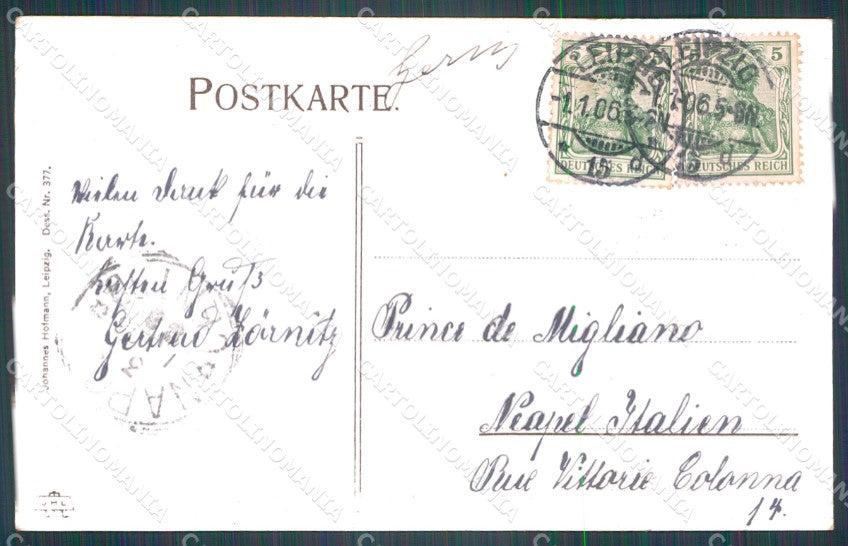 POSTKARTE.
5
LEIPZIG
1.1.06.
15 d
DEUTSCHES REICH
LEIPZIG
1.1.06.5-6N.
15 d
DEUTSCHES REICH
Vielen Dank für die
Karte.
Besten Gruß
Gertrud Zörnitz
Johannes Hofmann, Leipzig. Dess. Nr. 377.
Prince de Migliano
Neapel Italien
Rue Vittorie Colonna
14.
CARTOLINOMANIA